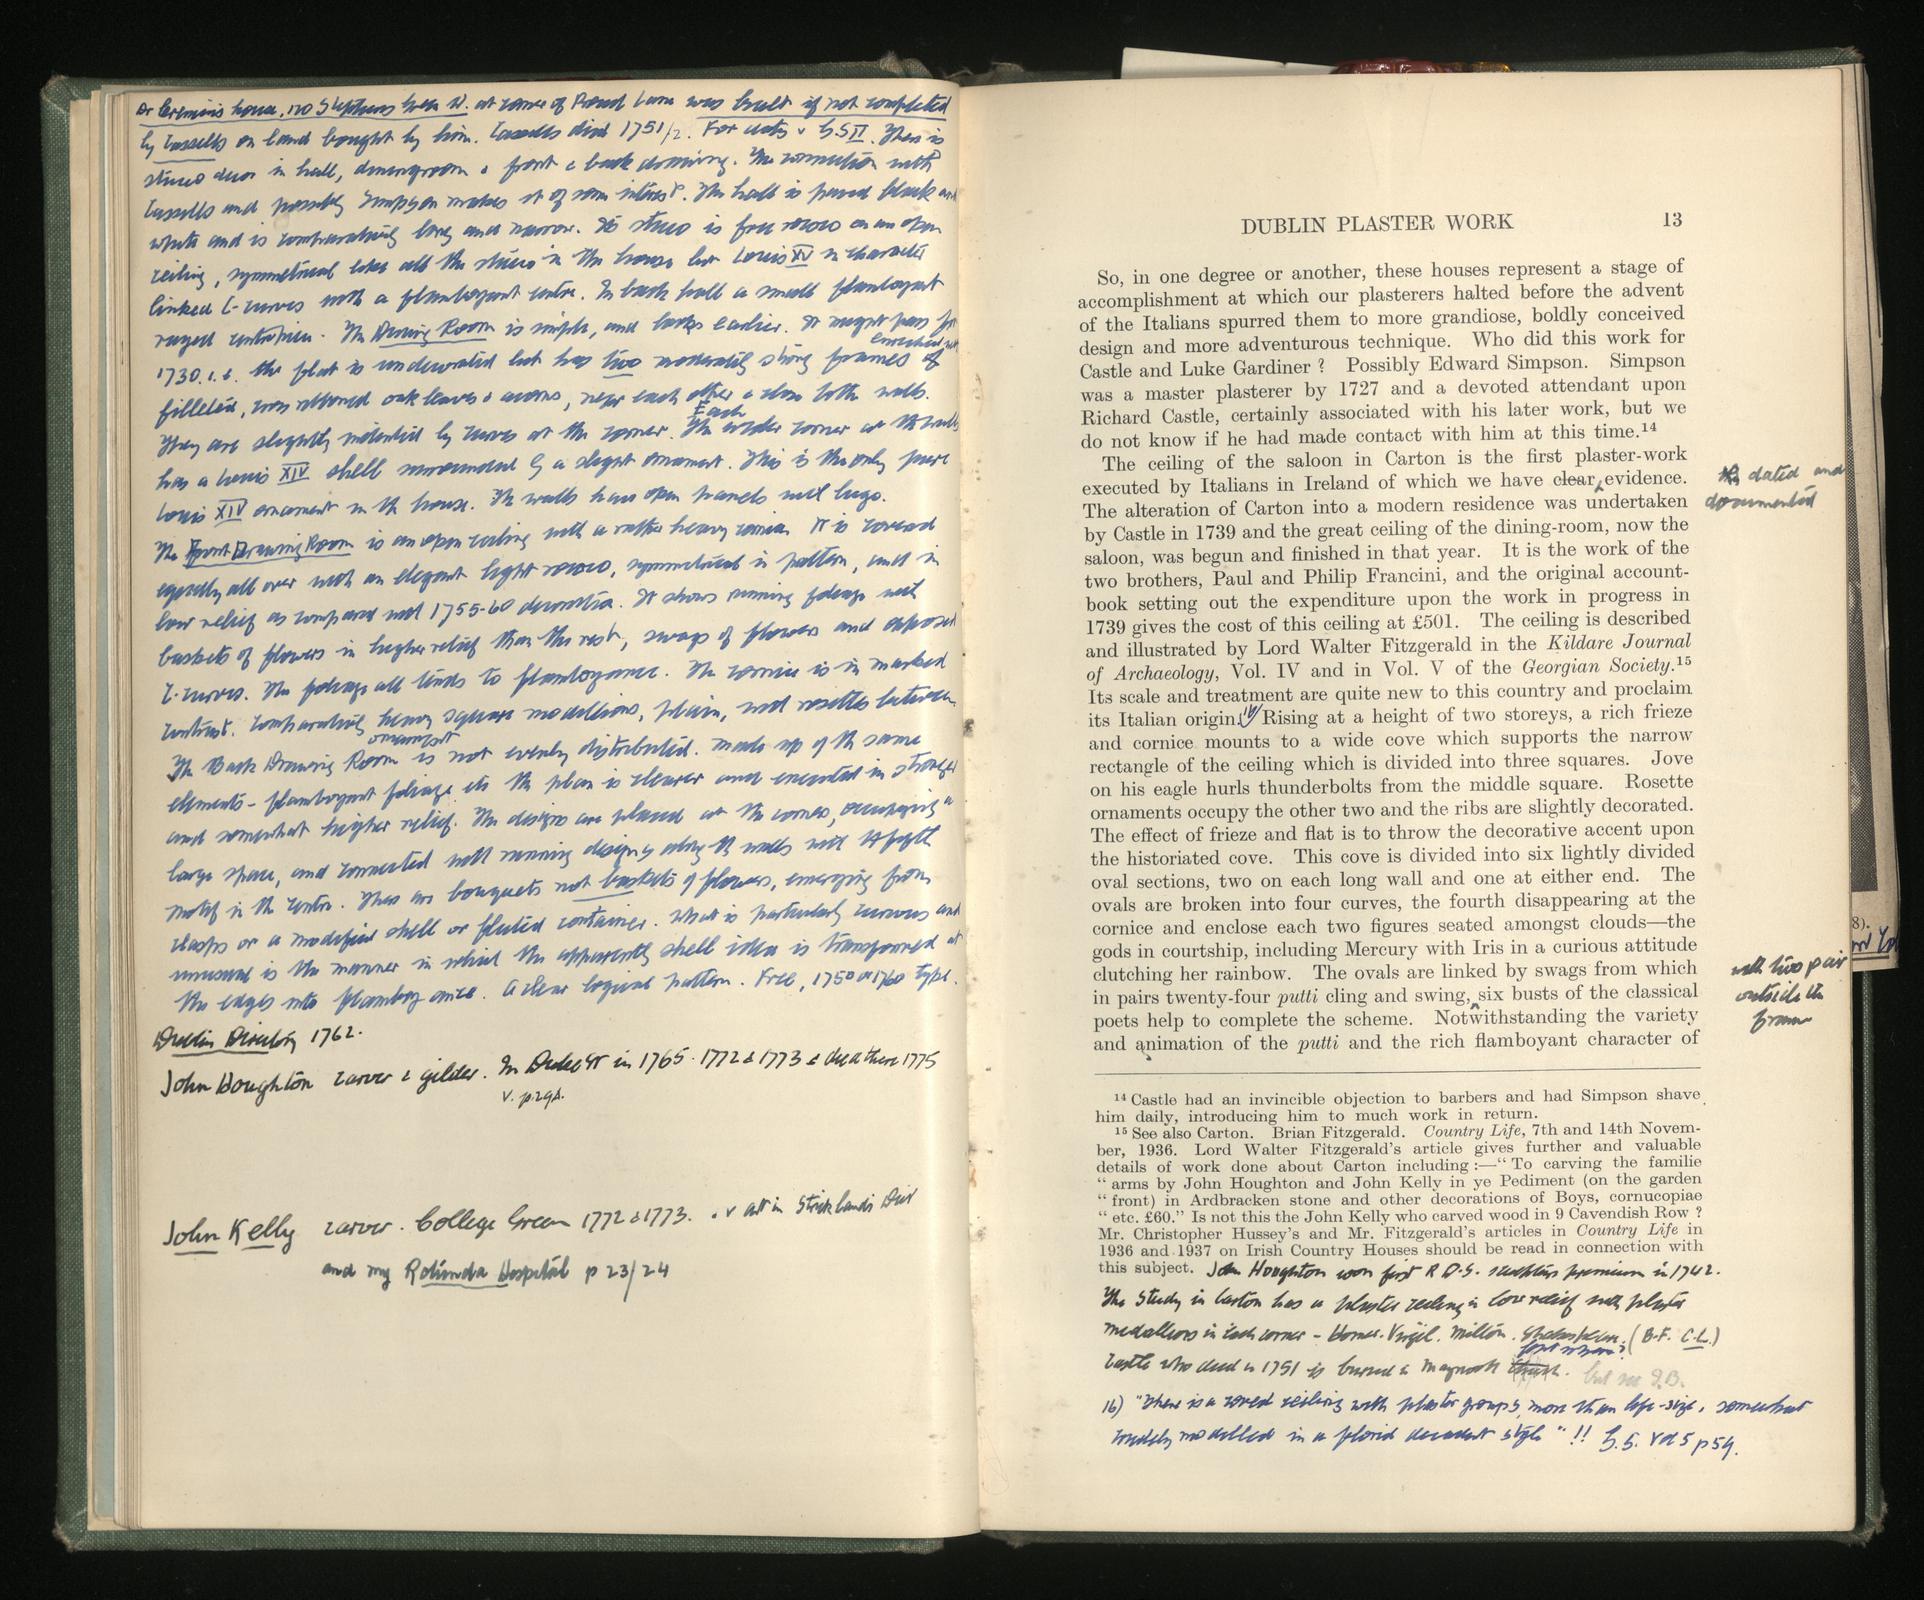 house, no Stephens Green N. at corner of Lane was built if not completed
by Cassells on land bought by him. Cassells died 1751/2. For v G.S II. There is
stucco in hall, diningroom & front & back drawing. The connection with
Cassells and possibly Simpson makes it of some interest. The hall is paved black and
white and is comparatively long and narrow. Its stucco is free rococo on an open
ceiling, symmetrical like all the stucco in the house but Louis XV in character
linked C-curves with a flamboyant centre. In back hall a small flamboyant
centrepiece. The Dining Room is simple, and looks earlier. It might pass for
1730. i.e. the flat is undecorated but has two moderately strong frames of
enriched with
filleted, oak leaves & acorns, near each other & close to the walls.
They are slightly by curves at the corner. The corner at the walls
Each
has a Louis XIV shell surrounded by a slight ornament. This is the only pure
Louis XIV ornament in the house. The walls have open panels with lugs.
The Front Drawing Room is an open ceiling with a rather heavy cornice. It is covered
equally all over with an elegant light rococo, symmetrical in pattern, and in
low relief as compared with 1755-60 decoration. It shows running foliage with
baskets of flowers in higher relief than the rest, swags of flowers and opposed
C-curves. The foliage all tends to flamboyance. The cornice is in marked
contrast. Comparatively heavy square modillions, plain, with rosettes between
ornament
The Back Drawing Room is not evenly distributed. Made up of the same
elements - flamboyant foliage etc the plan is clearer and executed in stronger
and somewhat higher relief. The designs are placed at the corners, occupying a
large space, and connected with running designs along the walls with a fifth
motif in the centre. There are bouquets not baskets of flowers, emerging from
clasps or a modified shell or fluted container. What is particularly curious and
unusual is the manner in which the apparently shell idea is transformed at
the edges into flamboyance. A clear logical pattern. Free, 1750 or 1760 type.
Dublin Directory 1762.
John Houghton carver & gilder. In Duke St in 1765. 1772 & 1773 & died there 1775
v. p. 29A.
John Kelly carver. College Green 1772 & 1773. v art in Stricklands Dict
and my Rotunda Hospital p 23/24
DUBLIN PLASTER WORK 13
So, in one degree or another, these houses represent a stage of
accomplishment at which our plasterers halted before the advent
of the Italians spurred them to more grandiose, boldly conceived
design and more adventurous technique. Who did this work for
Castle and Luke Gardiner ? Possibly Edward Simpson. Simpson
was a master plasterer by 1727 and a devoted attendant upon
Richard Castle, certainly associated with his later work, but we
do not know if he had made contact with him at this time.14
The ceiling of the saloon in Carton is the first plaster-work
executed by Italians in Ireland of which we have clear evidence.
dated and
documented
The alteration of Carton into a modern residence was undertaken
by Castle in 1739 and the great ceiling of the dining-room, now the
saloon, was begun and finished in that year. It is the work of the
two brothers, Paul and Philip Francini, and the original account-
book setting out the expenditure upon the work in progress in
1739 gives the cost of this ceiling at £501. The ceiling is described
and illustrated by Lord Walter Fitzgerald in the Kildare Journal
of Archaeology, Vol. IV and in Vol. V of the Georgian Society.15
Its scale and treatment are quite new to this country and proclaim
its Italian origin. 16 Rising at a height of two storeys, a rich frieze
and cornice mounts to a wide cove which supports the narrow
rectangle of the ceiling which is divided into three squares. Jove
on his eagle hurls thunderbolts from the middle square. Rosette
ornaments occupy the other two and the ribs are slightly decorated.
The effect of frieze and flat is to throw the decorative accent upon
the historiated cove. This cove is divided into six lightly divided
oval sections, two on each long wall and one at either end. The
ovals are broken into four curves, the fourth disappearing at the
cornice and enclose each two figures seated amongst clouds—the
gods in courtship, including Mercury with Iris in a curious attitude
clutching her rainbow. The ovals are linked by swags from which
in pairs twenty-four putti cling and swing, six busts of the classical
with two pair
outside the
frame
poets help to complete the scheme. Notwithstanding the variety
and animation of the putti and the rich flamboyant character of
14 Castle had an invincible objection to barbers and had Simpson shave
him daily, introducing him to much work in return.
15 See also Carton. Brian Fitzgerald. Country Life, 7th and 14th Novem-
ber, 1936. Lord Walter Fitzgerald's article gives further and valuable
details of work done about Carton including :—“ To carving the familie
“ arms by John Houghton and John Kelly in ye Pediment (on the garden
“ front) in Ardbracken stone and other decorations of Boys, cornucopiae
“ etc. £60.” Is not this the John Kelly who carved wood in 9 Cavendish Row ?
Mr. Christopher Hussey's and Mr. Fitzgerald's articles in Country Life in
1936 and 1937 on Irish Country Houses should be read in connection with
this subject. John Houghton won first R.D.S. sculpture premium in 1742.
The Study in Carton has a plaster ceiling in low relief with plaster
medallions in each corner - Homer. Virgil. Milton. Shakespeare. (B.F. C.L.)
Castle who died in 1751 is buried in Maynooth but where? but see I.B.
16) "There is a coved ceiling with plaster groups, more than life-size, somewhat
crudely modelled in a florid decadent style" !! G.S. Vol 5 p 54.
8).